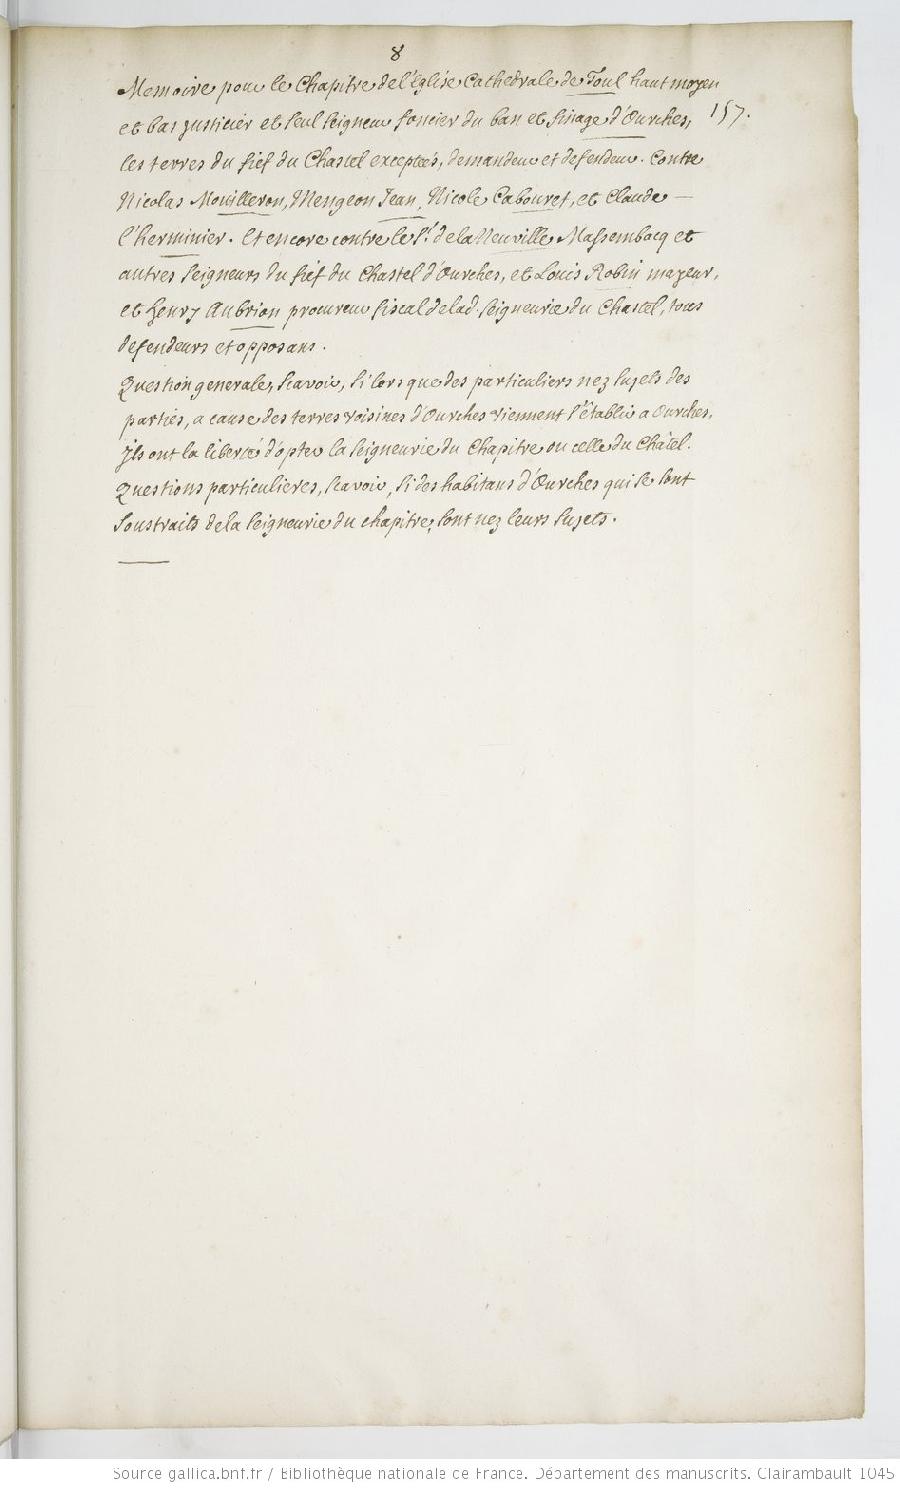 8
Memoire pour le Chapitre de l'Eglise Cathedrale de Toul haut moyen
et bas justicier et seul seigneur foncier du ban et finage d'Ourches,
157.
les terres du fief du Chastel exceptées, demandeur et defendeur. Contre
Nicolas Mouilleron, Mengeon Jean, Nicole Cabouret, et Claude —
l'herminier. Et encore contre le Sr. de la Neuville Massembacq et
autres seigneurs du fief du Chastel d'Ourches, et Louis Robin mayeur,
et henry Aubrion procureur fiscal de lad. seigneurie du Chastel, tous
defendeurs et opposans.
Question generale, scavoir, si lors que des particuliers nez sujets des
parties, a cause des terres voisines d'Ourches viennent s'établir a Ourches,
Ils ont la liberté d'opter la seigneurie du Chapitre ou celle du Châtel.
Questions particulieres, scavoir, si des habitans d'Ourches qui se sont
soustraits de la seigneurie du chapitre, sont nez leurs sujets.
Source gallica.bnf.fr / Bibliothèque nationale de France. Département des manuscrits. Clairambault 1045